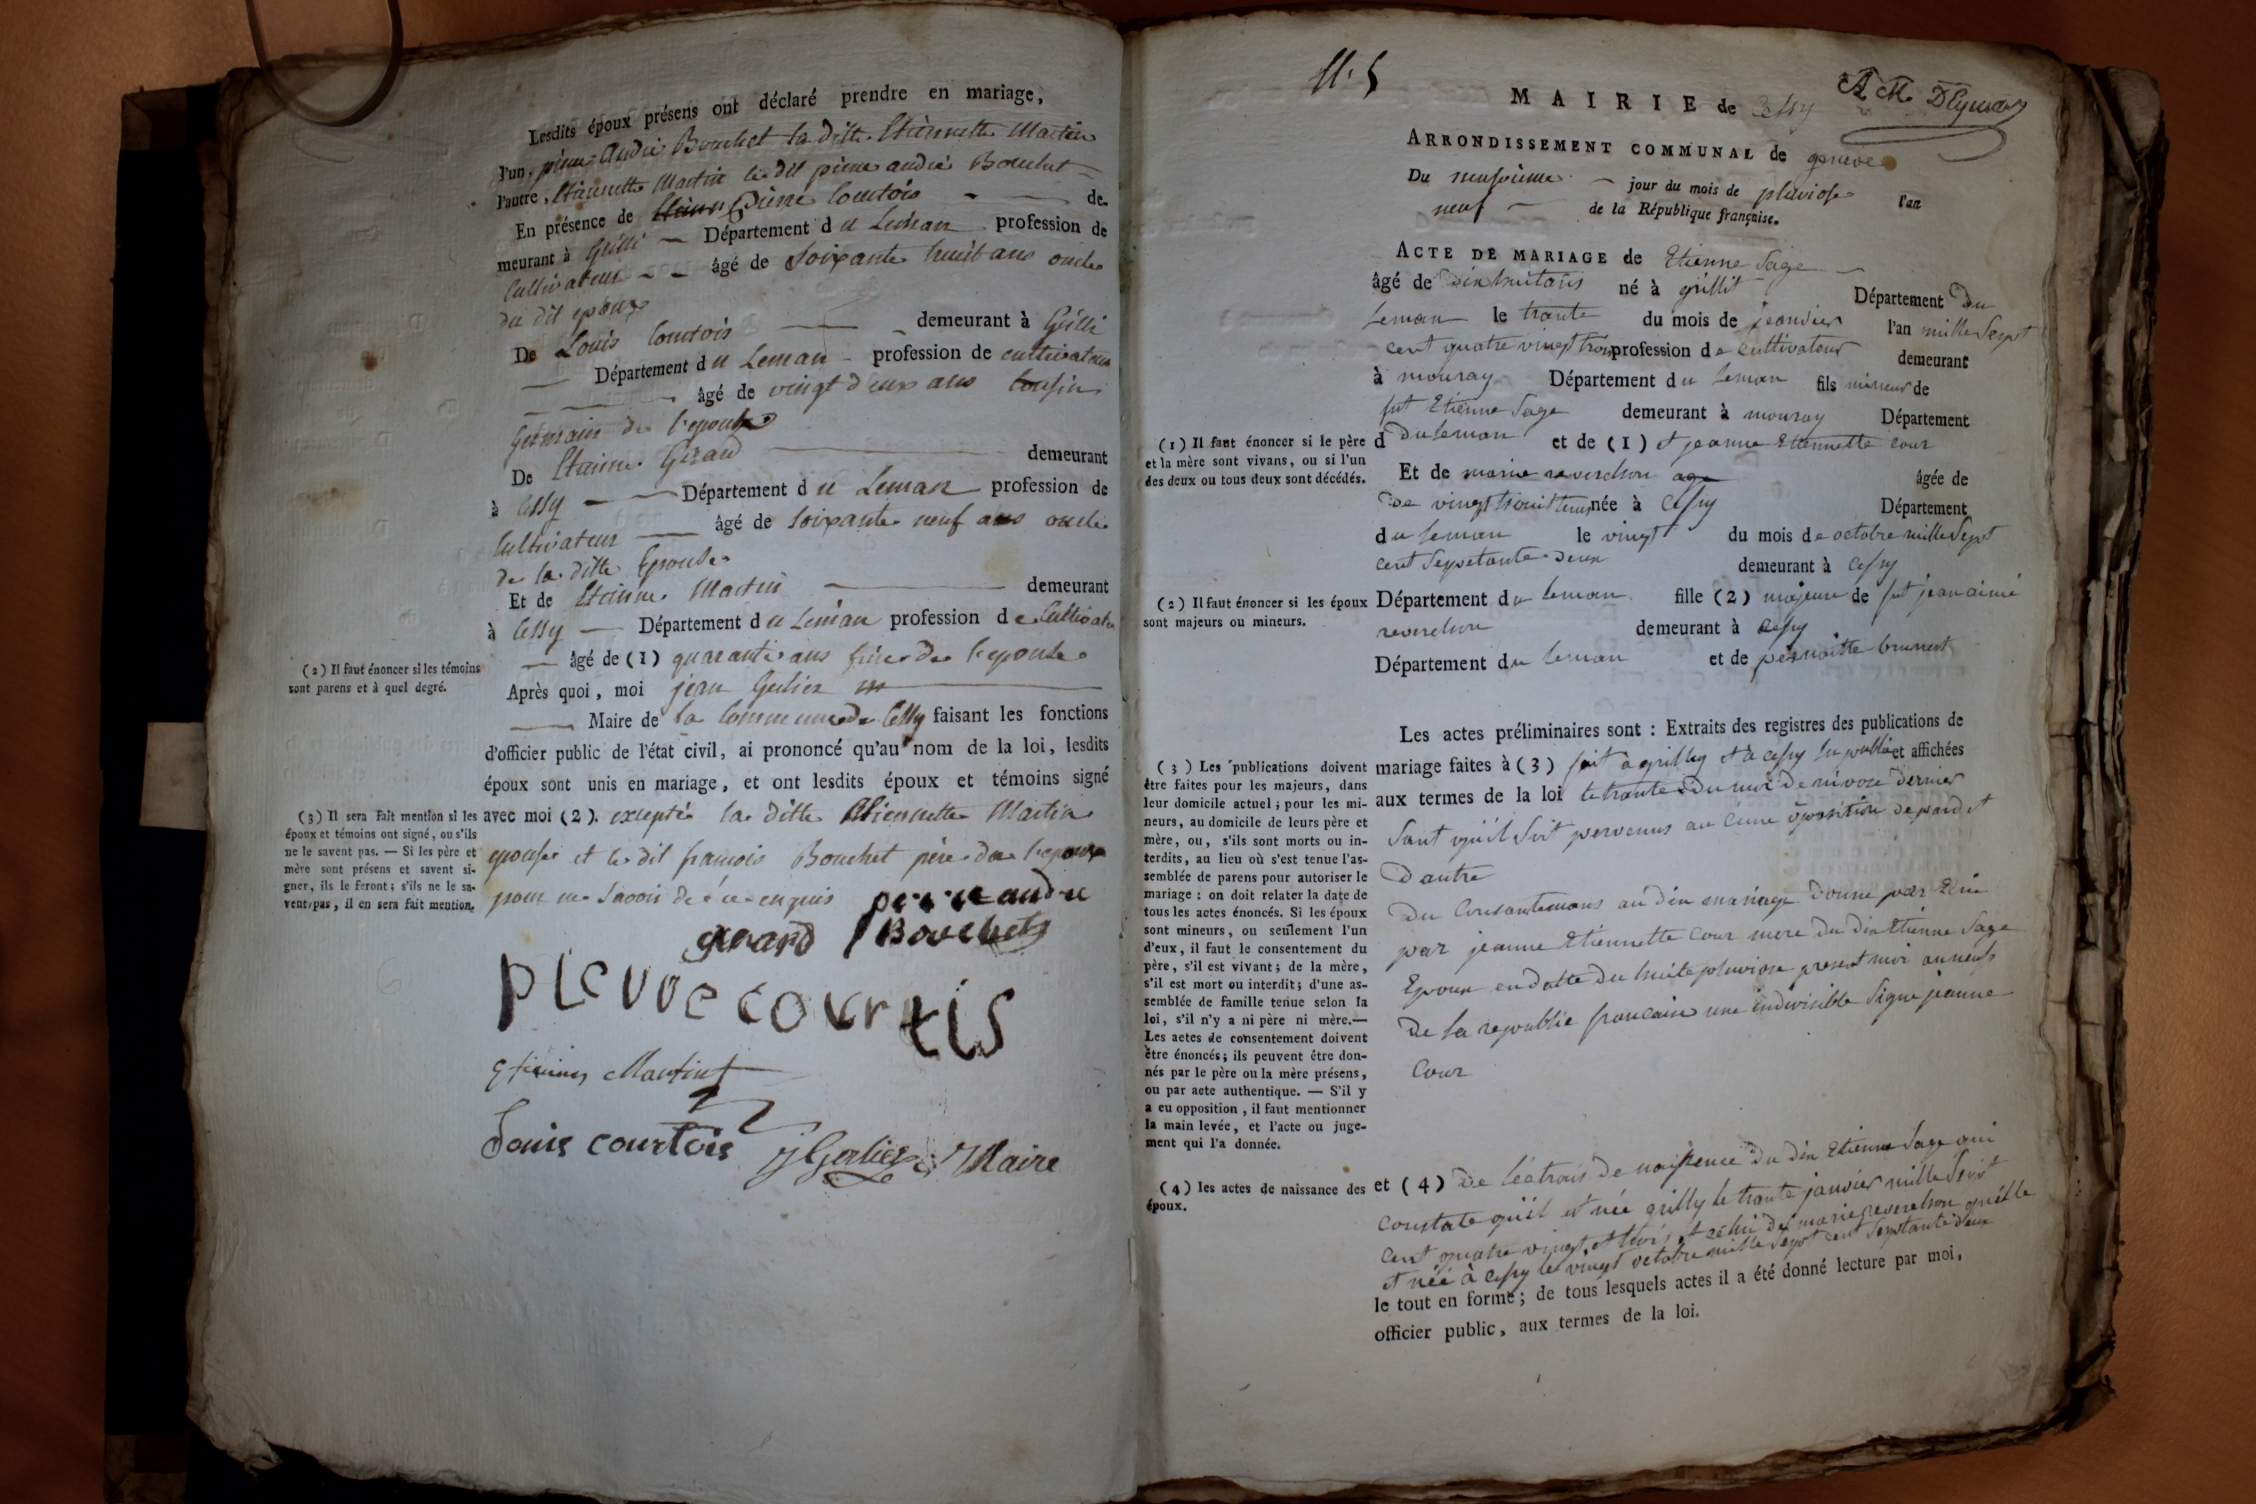 Lesdits époux présens ont déclaré prendre en mariage,
l'un, pierre André Bouchet la ditte Etiennette Martin
l'autre, Etiennette Martin le dit pierre andré Bouchet
En présence de Pierre Courtois - de-
meurant à Grilli — Département du Leman profession de
Cultivateur - - âgé de Soixante huit ans oncle
du dit epoux
De Louis Courtois — demeurant à Grilli
— Département du Leman - profession de cultivateur
— âgé de vingt deux ans Cousin
Germain de l'epouse
De Etienne Girard — demeurant
à Cessy — Département du Leman profession de
Cultivateur — âgé de Soixante neuf ans oncle
de la ditte Epouse
Et de Etienne Martin — demeurant
à Cessy — Département du Leman profession de Cultivateur
— âgé de (1) quarante ans frère de l'epouse
(2) Il faut énoncer si les témoins
sont parens et à quel degré.
Après quoi, moi jean Gerlier
— Maire de la Commune de Cessy faisant les fonctions
d'officier public de l'état civil, ai prononcé qu'au nom de la loi, lesdits
époux sont unis en mariage, et ont lesdits époux et témoins signé
avec moi (2). excepté la ditte Etiennette Martin
epouse et le dit francois Bouchet père de l'epoux
pour ne Savoir de ce enquis
(3) Il sera fait mention si les
époux et témoins ont signé, ou s'ils
ne le savent pas. — Si les père et
mère sont présens et savent si-
gner, ils le feront; s'ils ne le sa-
vent pas, il en sera fait mention.
pierre andre
girard Bouchet
pierre courtis
Etienne Martin
Louis courtois J Gerlier Maire
N.° 5
MAIRIE de Cessy
ARRONDISSEMENT COMMUNAL de geneve
Du neufvieme — jour du mois de pluviose l'an
neuf — de la République française.
ACTE DE MARIAGE de Etienne Sage —
âgé de dix huit ans né à grillit Département Du
Leman le trante du mois de jeanvier l'an mille Sept
cent quatre vingt trois profession de cultivateur demeurant
à mouray Département du Leman fils mineur de
fut Etienne Sage demeurant à mouray Département
d Du Leman et de (1) et jeanne Etiennette Cour
(1) Il faut énoncer si le père
et la mère sont vivans, ou si l'un
des deux ou tous deux sont décédés.
Et de marie reverchon age âgée de
de vingt huit ans née à Cessy Département
du Leman le vingt du mois de octobre mille Sept
cent Septante deux demeurant à Cessy
Département du Leman fille (2) majeure de fut jean aimé
reverchon demeurant à Cessy
Département du Leman et de pernoitte brunest
(2) Il faut énoncer si les époux
sont majeurs ou mineurs.
Les actes préliminaires sont : Extraits des registres des publications de
mariage faites à (3) fait a grilly et à Cessy et affichées
aux termes de la loi le trante du moi de nivose dernier
Sant qu'il Soit pervenus aucune oposition de part et
d'autre
Du Consantemans au din mariage donne par
par jeanne Etiennette Cour mere du din Etienne Sage
Epoux en datte du huite pluviose present moi an neuf
De la republic francaine une indivisible Signe jeanne
Cour
(3) Les publications doivent
être faites pour les majeurs, dans
leur domicile actuel; pour les mi-
neurs, au domicile de leurs père et
mère, ou, s'ils sont morts ou in-
terdits, au lieu où s'est tenue l'as-
semblée de parens pour autoriser le
mariage : on doit relater la date de
tous les actes énoncés. Si les époux
sont mineurs, ou seulement l'un
d'eux, il faut le consentement du
père, s'il est vivant; de la mère,
s'il est mort ou interdit; d'une as-
semblée de famille tenue selon la
loi, s'il n'y a ni père ni mère.—
Les actes de consentement doivent
être énoncés; ils peuvent être don-
nés par le père ou la mère présens,
ou par acte authentique. — S'il y
a eu opposition, il faut mentionner
la main levée, et l'acte ou juge-
ment qui l'a donnée.
(4) les actes de naissance des
époux.
et (4) De léxtrais de naissence du din Etienne Sage qui
constate quil et née grilly le trante janvier mille Sept
cent quatre vingt et troi, et celui de marie reverchon quélle
et née à Cessy le vingt octobre mille Sept cent Septante deux
le tout en forme; de tous lesquels actes il a été donné lecture par moi,
officier public, aux termes de la loi.